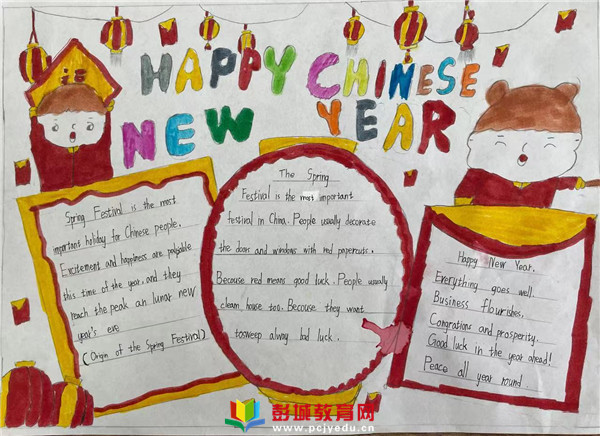 福
HAPPY CHINESE
NEW YEAR
Spring Festival is the most
important holiday for Chinese people.
Excitement and happiness are palpable
this time of the year, and they
reach the peak an lunar new
year's eve
(Origin of the Spring Festival)
The Spring
Festival is the most important
festival in China. People usually decorate
the doors and windows with red papercuts.
Because red means good luck. People usually
clean house too. Because they want
tosweep alway bad luck.
Happy New Year.
Everything goes well.
Business flourishes.
Congrations and prosperity.
Good luck in the year ahead!
Peace all year round
彭城教育网
www.pcjyedu.cn